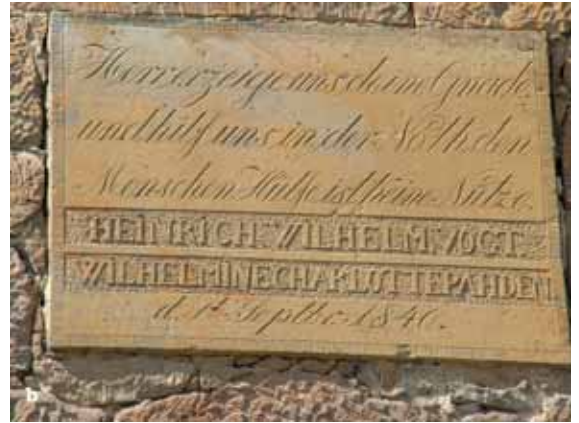 Herr erzeige uns deine Gnade
und hilf uns in der Noth den
Menschen Hülfe ist keine Nütze.
HEINRICH. WILHELM. VOGT.
WILHELMINE CHARLOTTE PAHDEN.
d. 1t. Septbr. 1846.
b